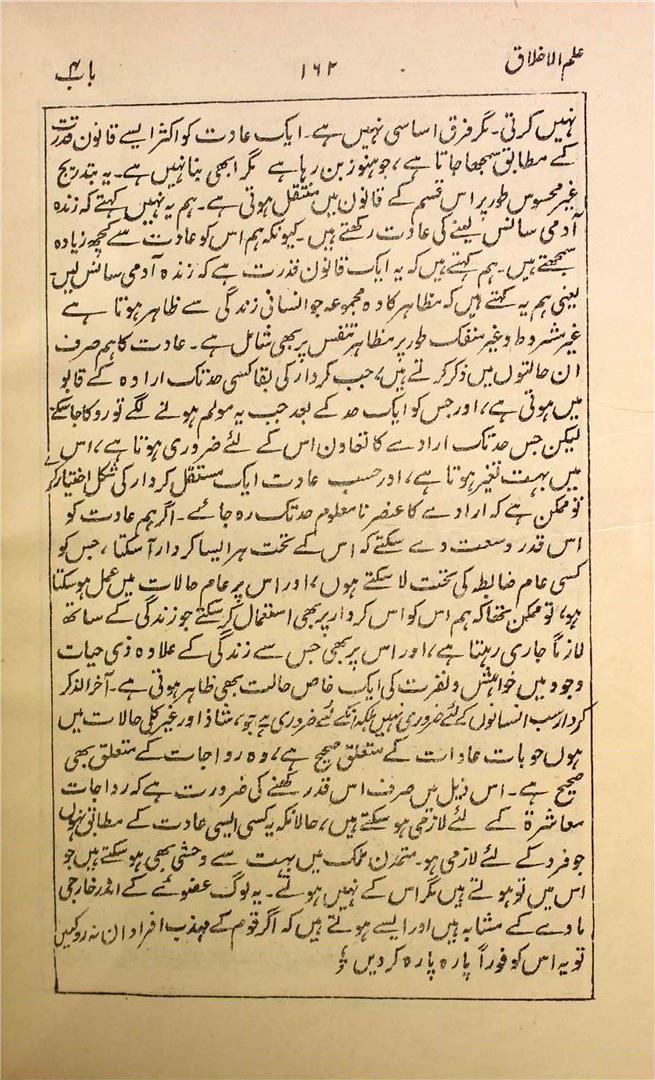 علم الاخلاق ۱۶۲ باب
نہیں کرتی۔ مگر فرق اساسی نہیں ہے۔ ایک عادت کو اکثر ایسے قانون قدرت
کے مطابق سمجھا جاتا ہے، جو ہنوز بن رہا ہے مگر ابھی بنا نہیں ہے۔ یہ بتدریج
غیر محسوس طور پر اس قسم کے قانون میں منتقل ہوتی ہے۔ ہم یہ نہیں کہتے کہ زندہ
آدمی سانس لینے کی عادت رکھتے ہیں۔ کیونکہ ہم اس کو عادت سے کچھ زیادہ
سمجھتے ہیں۔ ہم کہتے ہیں کہ یہ ایک قانون قدرت ہے کہ زندہ آدمی سانس لیں۔
یعنی ہم یہ کہتے ہیں کہ مظاہر کا وہ مجموعہ جو انسانی زندگی سے ظاہر ہوتا ہے
غیر مشروط و غیر منفک طور پر مظاہر تنفس پر بھی شامل ہے۔ عادت کا ہم صرف
ان حالتوں میں ذکر کرتے ہیں، جب کردار کی بقا کسی حد تک ارادہ کے قابو
میں ہوتی ہے، اور جس کو ایک حد کے بعد جب یہ مولم ہونے لگے تو روکا جا سکے
لیکن جس حد تک ارادے کا تعاون اس کے لئے ضروری ہوتا ہے، اس
میں بہت تغیر ہوتا ہے، اور جب عادت ایک مستقل کردار کی شکل اختیار کرے
تو ممکن ہے کہ ارادے کا عنصر نا معلوم حد تک رہ جائے۔ اگر ہم عادت کو
اس قدر وسعت دے سکتے کہ اس کے تحت ہر ایسا کردار آسکتا، جس کو
کسی عام ضابطہ کی تحت لا سکتے ہوں، اور اس پر عام حالات میں عمل ہو سکتا
ہو، تو ممکن تھا کہ ہم اس کو اس کردار پر بھی استعمال کر سکتے جو زندگی کے ساتھ
لازماً جاری رہتا ہے، اور اس پر بھی جس سے زندگی کے علاوہ ذی حیات
وجود میں خواہش و نفرت کی ایک خاص حالت بھی ظاہر ہوتی ہے۔ آخر الذکر
کردار سب انسانوں کے لئے ضروری نہیں بلکہ انکے لئے ضروری ہے جو، شاذ اور غیر کلی حالات میں
ہوں جو بات عادات کے متعلق صحیح ہے، وہ رواجات کے متعلق بھی
صحیح ہے۔ اس ذیل میں صرف اس قدر کہنے کی ضرورت ہے کہ رواجات
معاشرۃ کے لئے لازمی ہو سکتے ہیں، حالانکہ یہ کسی ایسی عادت کے مطابق نہوں
جو فرد کے لئے لازمی ہو۔ متمدن ملک میں بہت سے وحشی بھی ہو سکتے ہیں جو
اس میں تو ہوتے ہیں مگر اس کے نہیں ہوتے۔ یہ لوگ عضوئے کے اندر خارجی
مادے کے مشابہ ہیں اور ایسے ہوتے ہیں کہ اگر قوم کے مہذب افراد ان نہ روکیں
تو یہ اس کو فوراً پارہ پارہ کر دیں